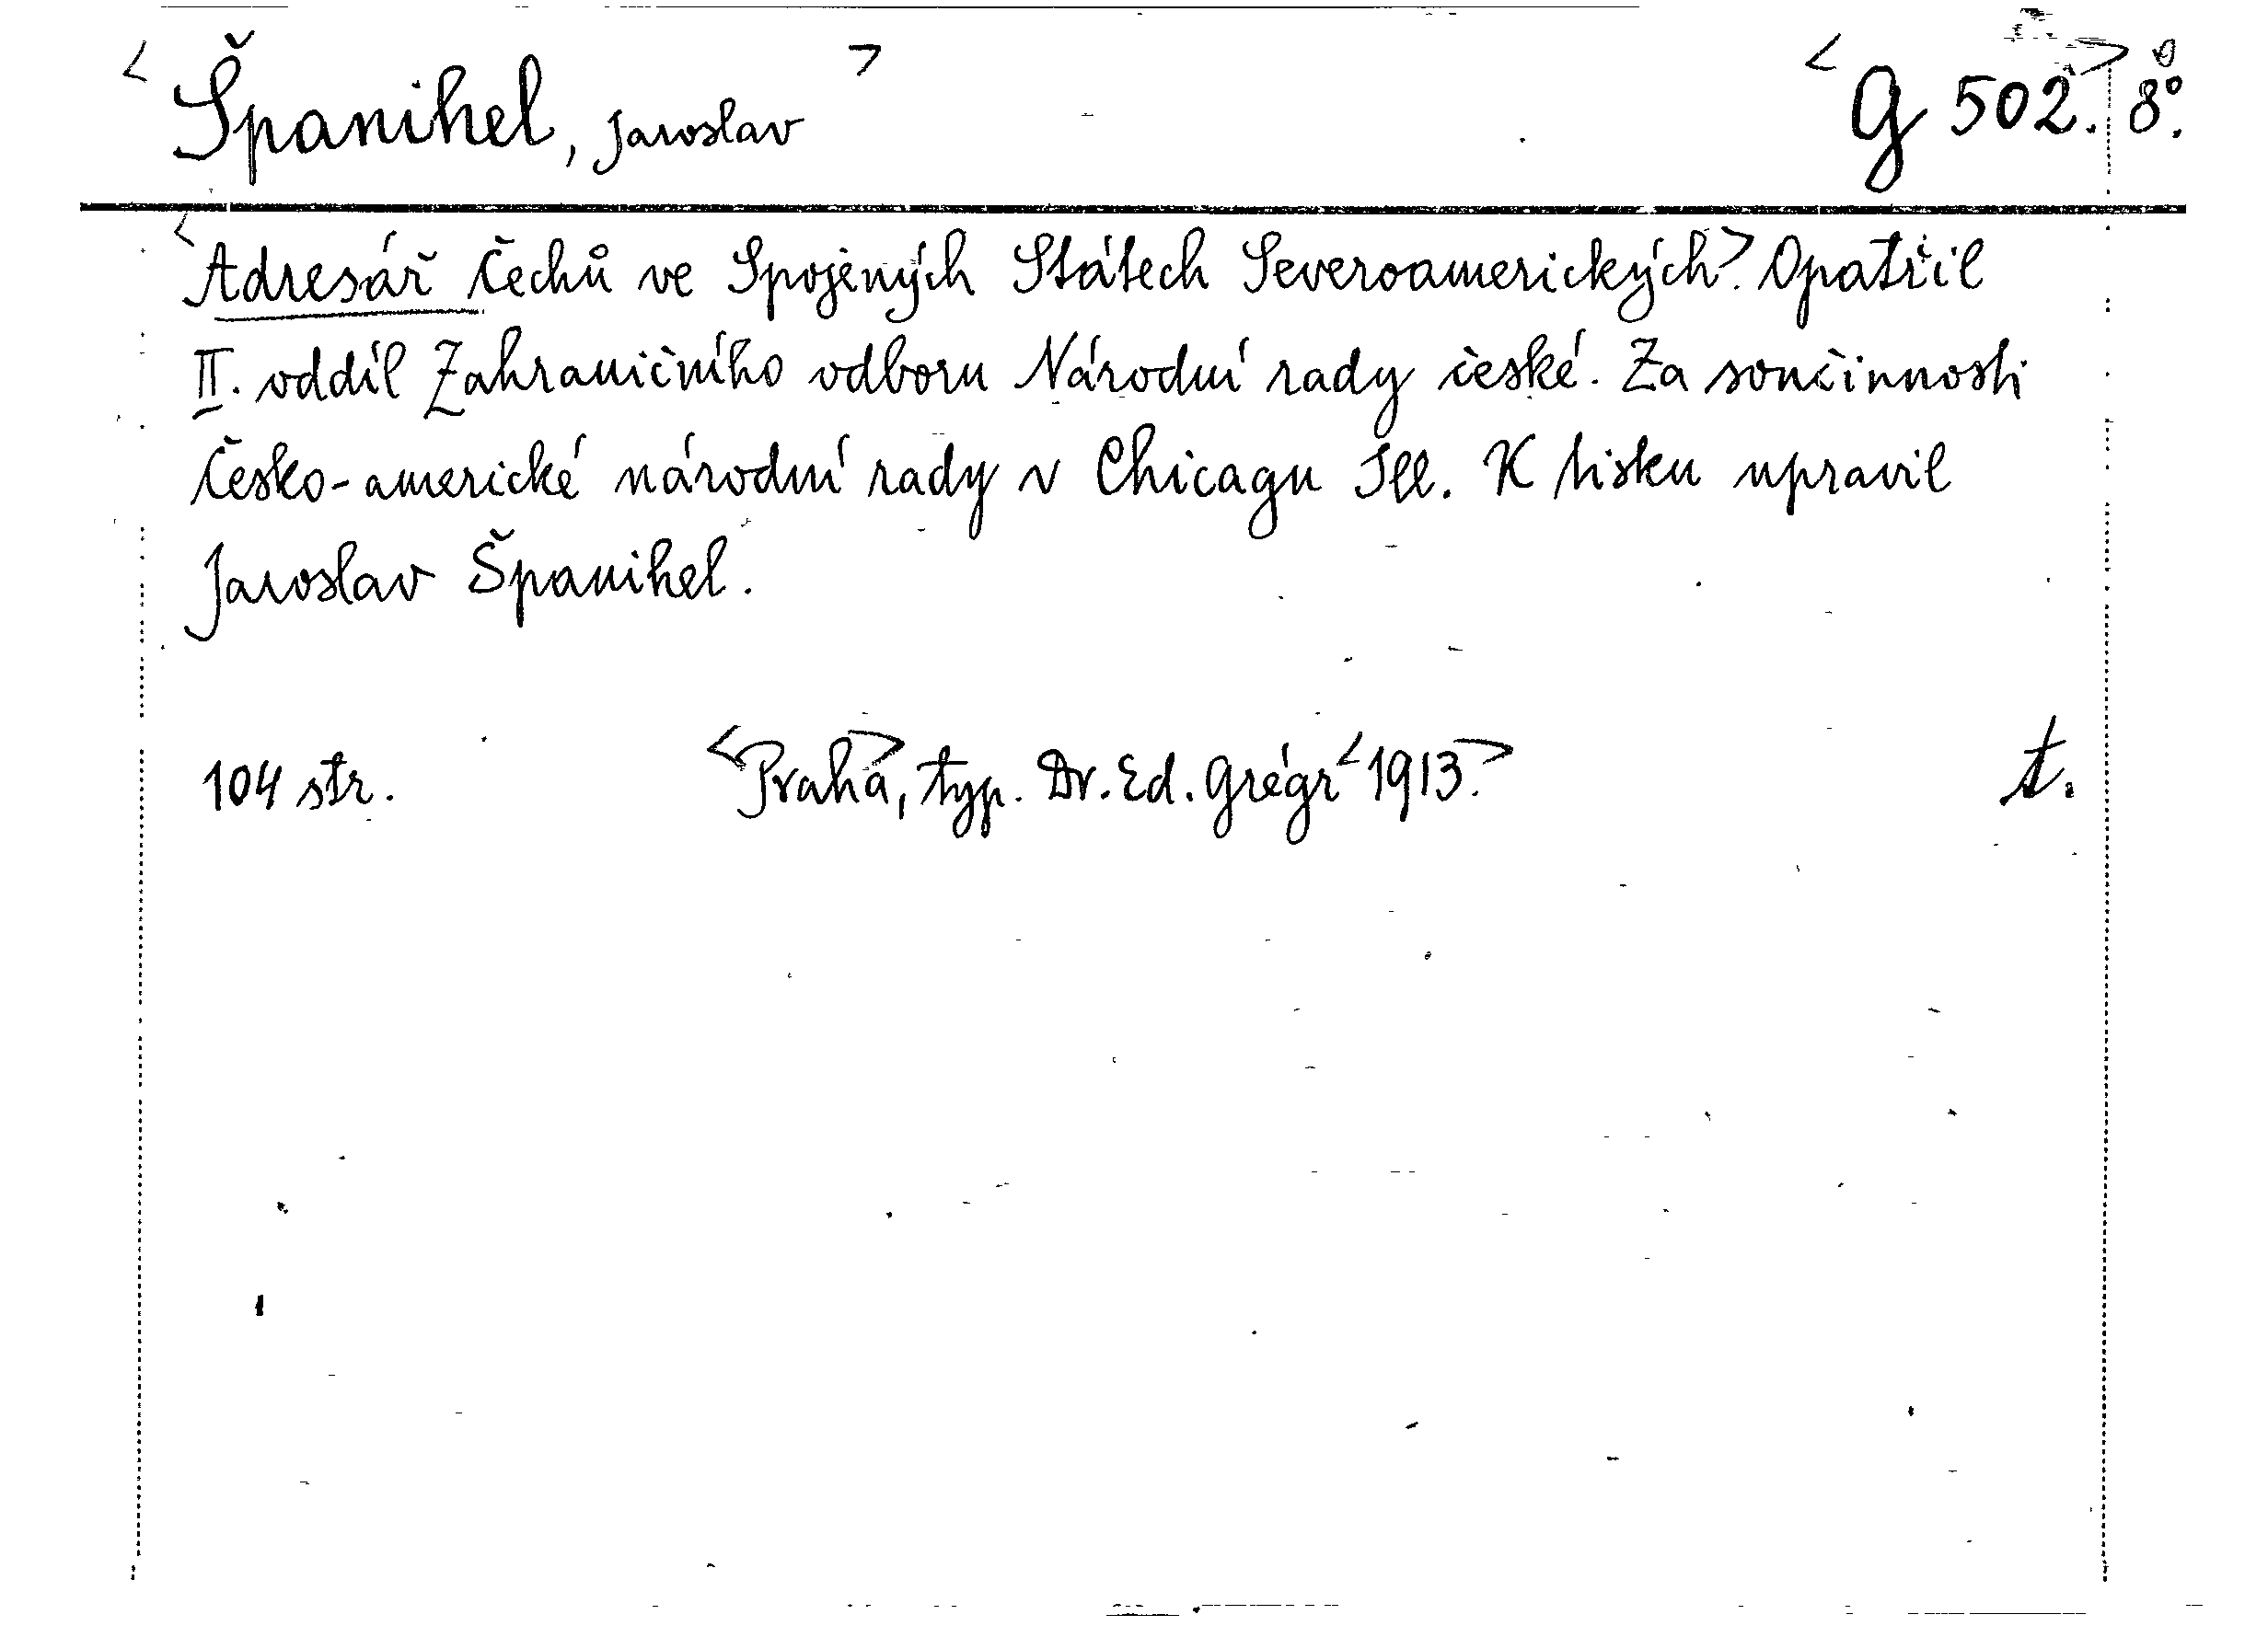 <Španihel, Jaroslav> <G 502.> 8°.
<Adresář Čechů ve Spojených Státech Severoamerických>. Opatřil
II. oddíl Zahraničního odboru Národní rady české. Za součinnosti
Česko-americké národní rady v Chicagu Ill. K tisku upravil
Jaroslav Španihel.
104 str. <Praha>, typ. Dr. Ed. Grégr <1913.> t.